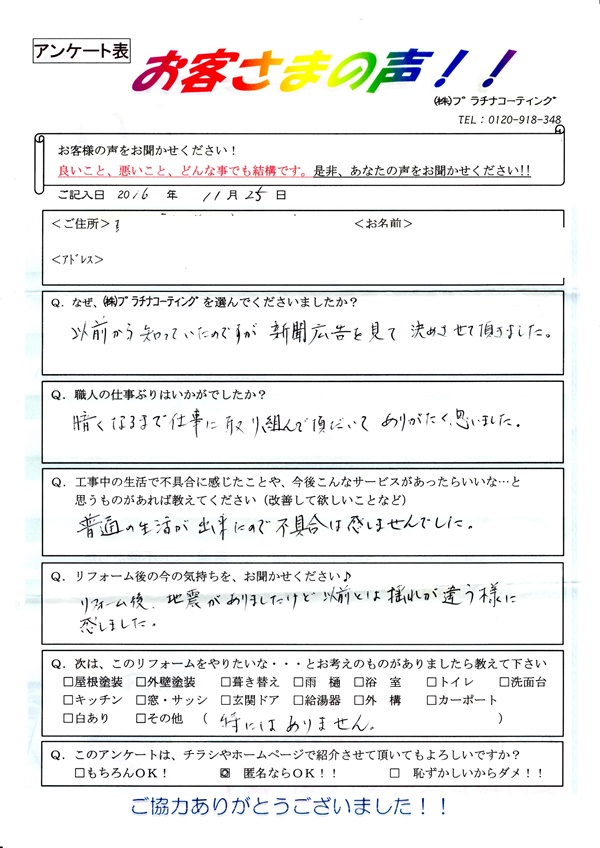 アンケート表
お客さまの声！！
㈱プラチナコーティング
TEL：0120-918-348
お客様の声をお聞かせください！
良いこと、悪いこと、どんな事でも結構です。是非、あなたの声をお聞かせください!!
ご記入日 2016 年 11 月 25 日
＜ご住所＞ ＜お名前＞
＜アドレス＞
Q．なぜ、㈱プラチナコーティングを選んでくださいましたか？
以前から知っていたのですが 新聞広告を見て 決めさせて頂きました。
Q．職人の仕事ぶりはいかがでしたか？
暗くなるまで仕事に取り組んで頂だいて ありがたく思いました。
Q．工事中の生活で不具合に感じたことや、今後こんなサービスがあったらいいな…と
思うものがあれば教えてください（改善して欲しいことなど）
普通の生活が出来たので不具合は感しませんでした。
Q．リフォーム後の今の気持ちを、お聞かせください♪
リフォーム後、地震がありましたけど以前とは揺れが違う様に
感しました。
Q．次は、このリフォームをやりたいな・・・とお考えのものがありましたら教えて下さい
□屋根塗装 □外壁塗装 □葺き替え □雨 樋 □浴 室 □トイレ □洗面台
□キッチン □窓・サッシ □玄関ドア □給湯器 □外 構 □カーポート
□白あり □その他 （ 特にはありません。 ）
Q．このアンケートは、チラシやホームページで紹介させて頂いてもよろしいですか？
□もちろんOK！ ◎ 匿名ならOK！！ □ 恥ずかしいからダメ！！
ご協力ありがとうございました！！